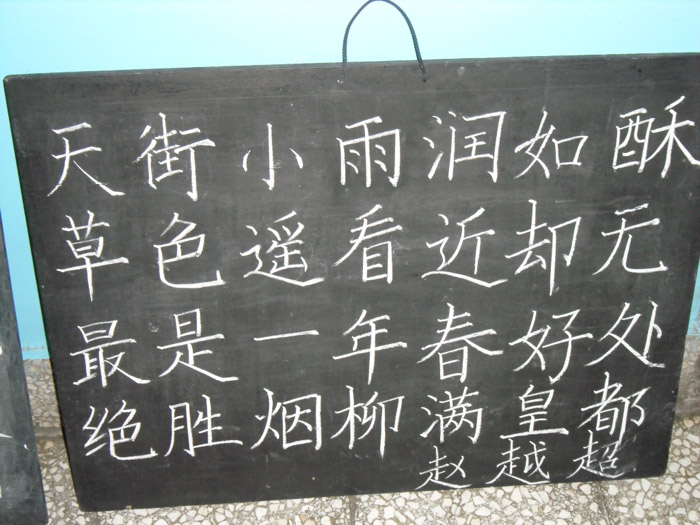 天街小雨润如酥
草色遥看近却无
最是一年春好处
绝胜烟柳满皇都
赵越超